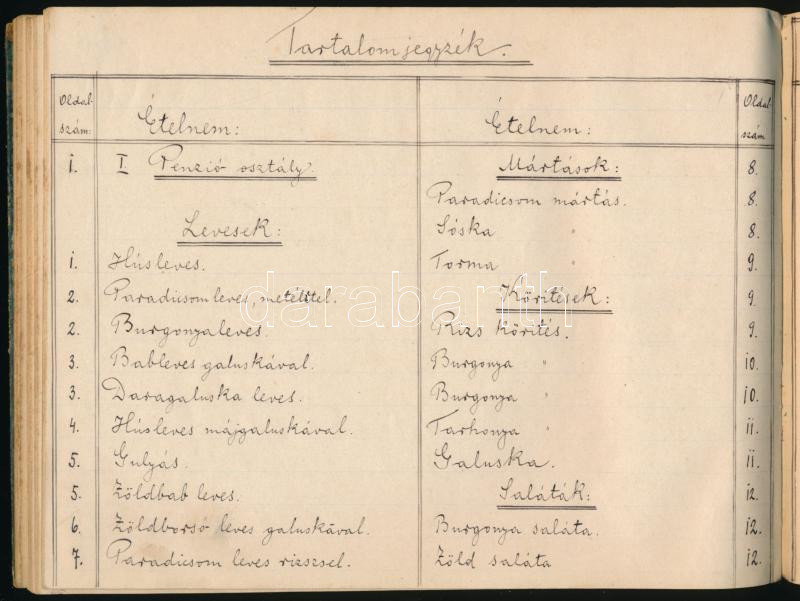 Tartalomjegyzék.
Oldal-szám: Ételnem:
1. I. Penzió osztály.
Levesek:
1. Húsleves.
2. Paradicsomleves, metélttel.
2. Burgonyaleves.
3. Bableves galuskával.
3. Daragaluska leves.
4. Húsleves májgaluskával.
5. Gulyás.
5. Zöldbab leves.
6. Zöldborsó leves galuskával.
7. Paradicsom leves rizszsel.
Ételnem: Oldal-szám
Mártások: 8.
Paradicsom mártás. 8.
Sóska " 8.
Torma 9.
Körítések: 9.
Rizs körítés. 9.
Burgonya " 10.
Burgonya " 10.
Tarhonya " 11.
Galuska. 11.
Saláták: 12.
Burgonya saláta. 12.
Zöld saláta 12.
darabanth